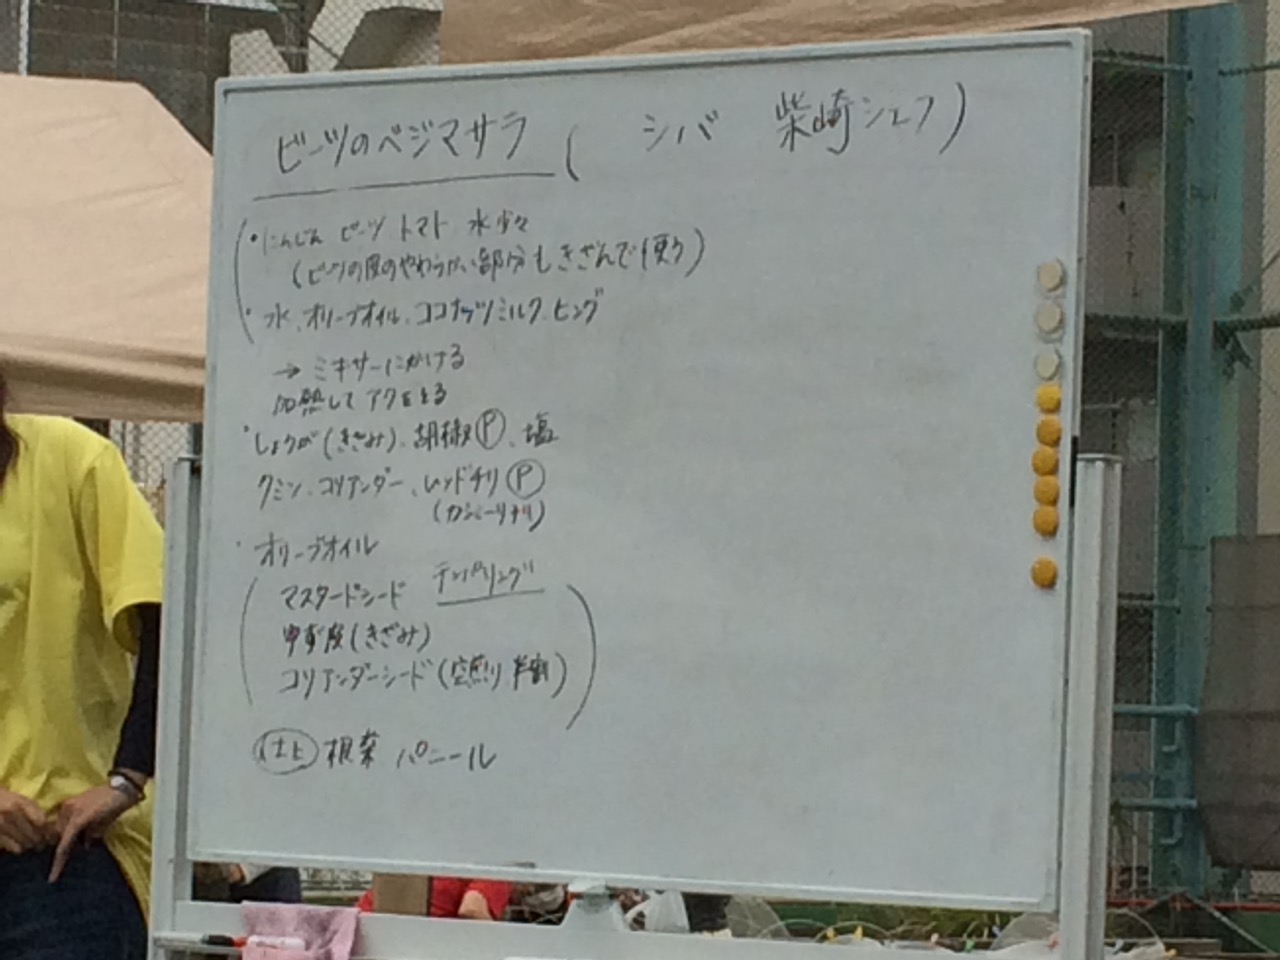 ビーツのベジマサラ ( シバ 柴崎シェフ )
・にんじん ビーツ トマト 水少々
(ビーツの皮のやわらかい部分もきざんで使う)
・水、オリーブオイル、ココナッツミルク、ヒング
→ミキサーにかける
加熱してアクをとる
・しょうが(きざみ)、胡椒Ⓟ、塩
クミン、コリアンダー、レッドチリⓅ
(カシミーリチリ)
・オリーブオイル
マスタードシード テンパリング
甲殻(きざみ)
コリアンダーシード(空煎り 半割)
仕上 根菜 パニール